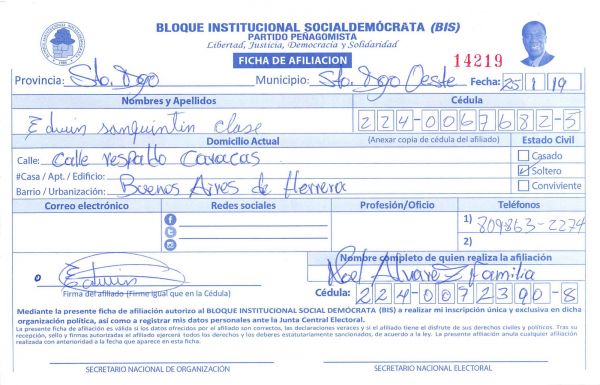 BLOQUE INSTITUCIONAL SOCIALDEMÓCRATA (BIS)
PARTIDO PEÑAGOMISTA
Libertad, Justicia, Democracia y Solidaridad
FICHA DE AFILIACION
14219
Provincia: Sto. Dgo Municipio: Sto. Dgo Oeste Fecha: 25 1 19
Nombres y Apellidos Cédula
Edwin sanquintin clase 224-0067682-5
Domicilio Actual (Anexar copia de cédula del afiliado) Estado Civil
Calle: Calle respaldo Caracas Casado
#Casa / Apt. / Edificio: Soltero
Barrio / Urbanización: Buenos Aires de Herrera Conviviente
Correo electrónico Redes sociales Profesión/Oficio Teléfonos
1) 809863-2274
2)
Nombre completo de quien realiza la afiliación
Edwin Noel Alvarez Familia
Firma del afiliado (Firme igual que en la Cédula) Cédula: 224-0072390-8
Mediante la presente ficha de afiliación autorizo al BLOQUE INSTITUCIONAL SOCIAL DEMÓCRATA (BIS) a realizar mi inscripción única y exclusiva en dicha
organización política, así como a registrar mis datos personales ante la Junta Central Electoral.
La presente ficha de afiliación es válida si los datos ofrecidos por el afiliado son correctos, las declaraciones veraces y si el afiliado tiene el disfrute de sus derechos civiles y políticos. Tras su
recepción, sello y firmas autorizadas el afiliado ejercerá todos los derechos y los deberes estatutariamente sancionados, de acuerdo a la ley. La presente afiliación anula cualquier afiliación
realizada con anterioridad a la fecha que aparece en esta ficha.
SECRETARIO NACIONAL DE ORGANIZACIÓN SECRETARIO NACIONAL ELECTORAL